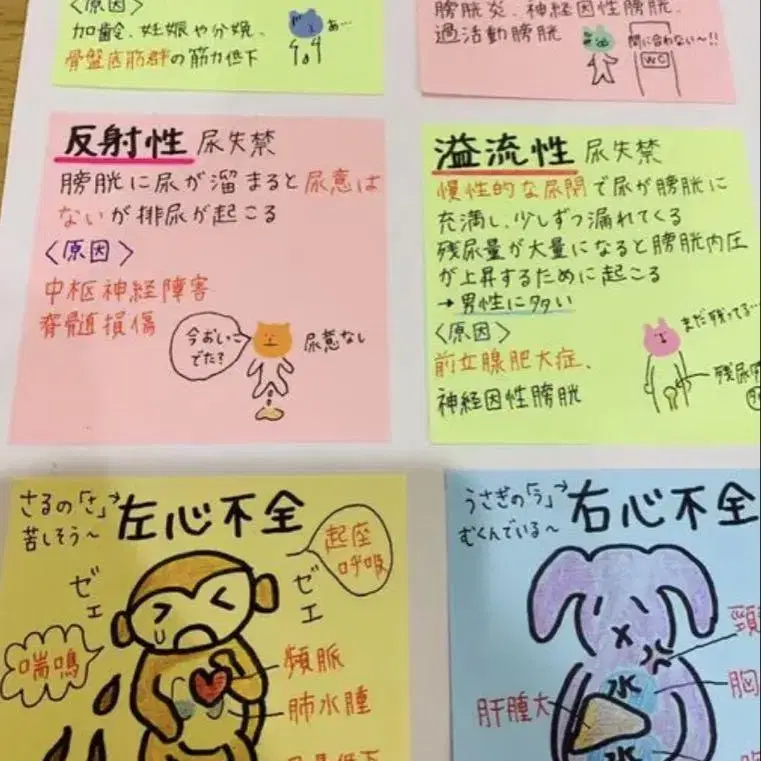 〈原因〉
加齢、妊娠や分娩、
骨盤底筋群の筋力低下
あ…
膀胱炎、神経因性膀胱、
過活動膀胱
間に合わない〜!!
WC
反射性 尿失禁
膀胱に尿が溜まると尿意は
ないが排尿が起こる
〈原因〉
中枢神経障害
脊髄損傷
今おしっこ
でた?
尿意なし
溢流性 尿失禁
慢性的な尿閉で尿が膀胱に
充満し、少しずつ漏れてくる
残尿量が大量になると膀胱内圧
が上昇するために起こる
→男性に多い
〈原因〉
前立腺肥大症、
神経因性膀胱
まだ残ってる…
残尿
さるの「さ」→
苦しそう〜
左心不全
起座
呼吸
ゼェ
ゼェ
喘鳴
頻脈
肺水腫
うさぎの「う」→
むくんでいる〜
右心不全
水
肝腫大
水